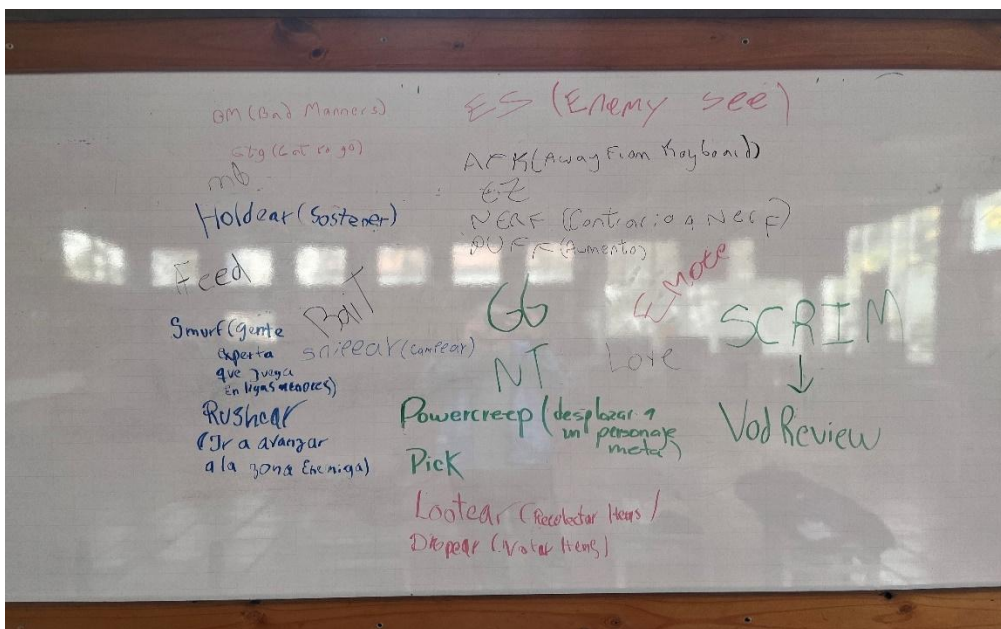 BM (Bad Manners)
Gtg (Got to go)
Holdear (Sostener)
Feed
Bait
Smurf (gente
experta
que juega
en ligas menores)
Rushear
(Ir a avanzar
a la zona Enemiga)
ES (Enemy see)
AFK (Away From Keyboard)
EZ
NERF (Contrario a Nerf)
BUFF (Aumento)
GG
NT
Emote
Lore
(campear)
Powercreep (desplazar a
un personaje
meta)
Pick
Lootear (Recolectar Items)
Dropear (Votar Items)
SCRIM
↓
Vod Review